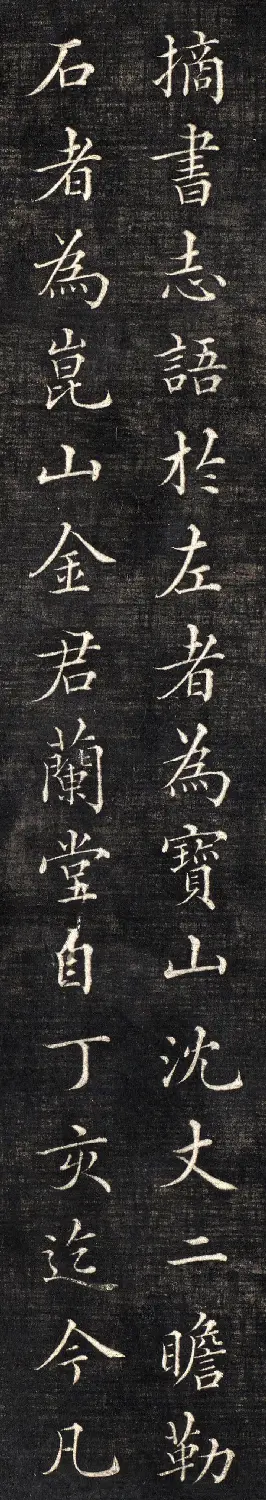 摘書志語於左者為寶山沈丈二瞻勒
石者為崑山金君蘭堂自丁亥迄今凡